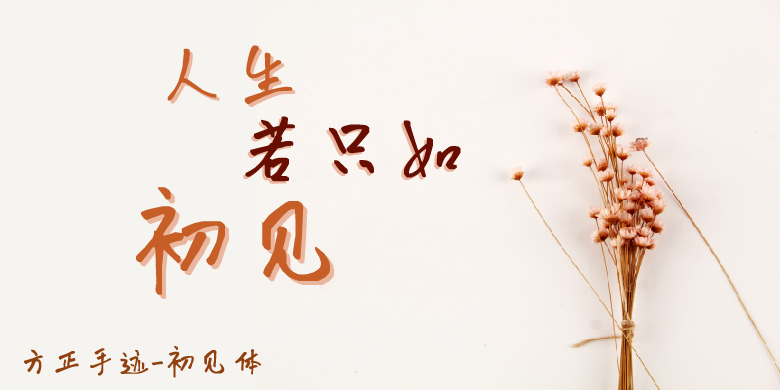 人生
若只如
初见
方正手迹-初见体